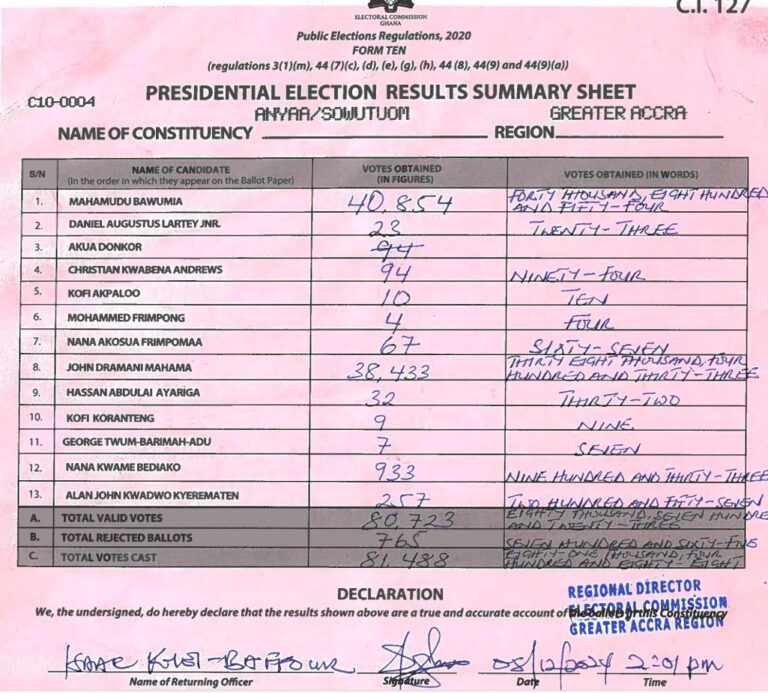 C.I. 127
ELECTORAL COMMISSION
GHANA
Public Elections Regulations, 2020
FORM TEN
(regulations 3(1)(m), 44 (7)(c), (d), (e), (g), (h), 44 (8), 44(9) and 44(9)(a))
C10-0004
PRESIDENTIAL ELECTION RESULTS SUMMARY SHEET
ANYAA/SOWUTUOM GREATER ACCRA
NAME OF CONSTITUENCY REGION
S/N NAME OF CANDIDATE (In the order in which they appear on the Ballot Paper) VOTES OBTAINED (IN FIGURES) VOTES OBTAINED (IN WORDS)
1. MAHAMUDU BAWUMIA 40,854 FORTY HTOUSAND, EIGHT HUNDRED AND FIFTY-FOUR
2. DANIEL AUGUSTUS LARTEY JNR. 23 TWENTY-THREE
3. AKUA DONKOR 94
4. CHRISTIAN KWABENA ANDREWS 94 NINETY-FOUR
5. KOFI AKPALOO 10 TEN
6. MOHAMMED FRIMPONG 4 FOUR
7. NANA AKOSUA FRIMPOMAA 67 SIXTY-SEVEN
8. JOHN DRAMANI MAHAMA 38,433 THIRTY EIGHT THOUSAND, FOUR HUNDRED AND THIRTY-THREE
9. HASSAN ABDULAI AYARIGA 32 THIRTY-TWO
10. KOFI KORANTENG 9 NINE
11. GEORGE TWUM-BARIMAH-ADU 7 SEVEN
12. NANA KWAME BEDIAKO 933 NINE HUNDRED AND THIRTY-THREE
13. ALAN JOHN KWADWO KYEREMATEN 257 TWO HUNDRED AND FIFTY-SEVEN
A. TOTAL VALID VOTES 80,723 EIGHTY THOUSAND, SEVEN HUNDRED AND TWENTY-THREE
B. TOTAL REJECTED BALLOTS 765 SEVEN HUNDRED AND SIXTY-FIVE
C. TOTAL VOTES CAST 81,488 EIGHTY-ONE THOUSAND, FOUR HUNDRED AND EIGHTY-EIGHT
DECLARATION
We, the undersigned, do hereby declare that the results shown above are a true and accurate account of the ballots in this Constituency
REGIONAL DIRECTOR
ELECTORAL COMMISSION
GREATER ACCRA REGION
ISAAC 08/12/2024 2:01pm
Name of Returning Officer Signature Date Time